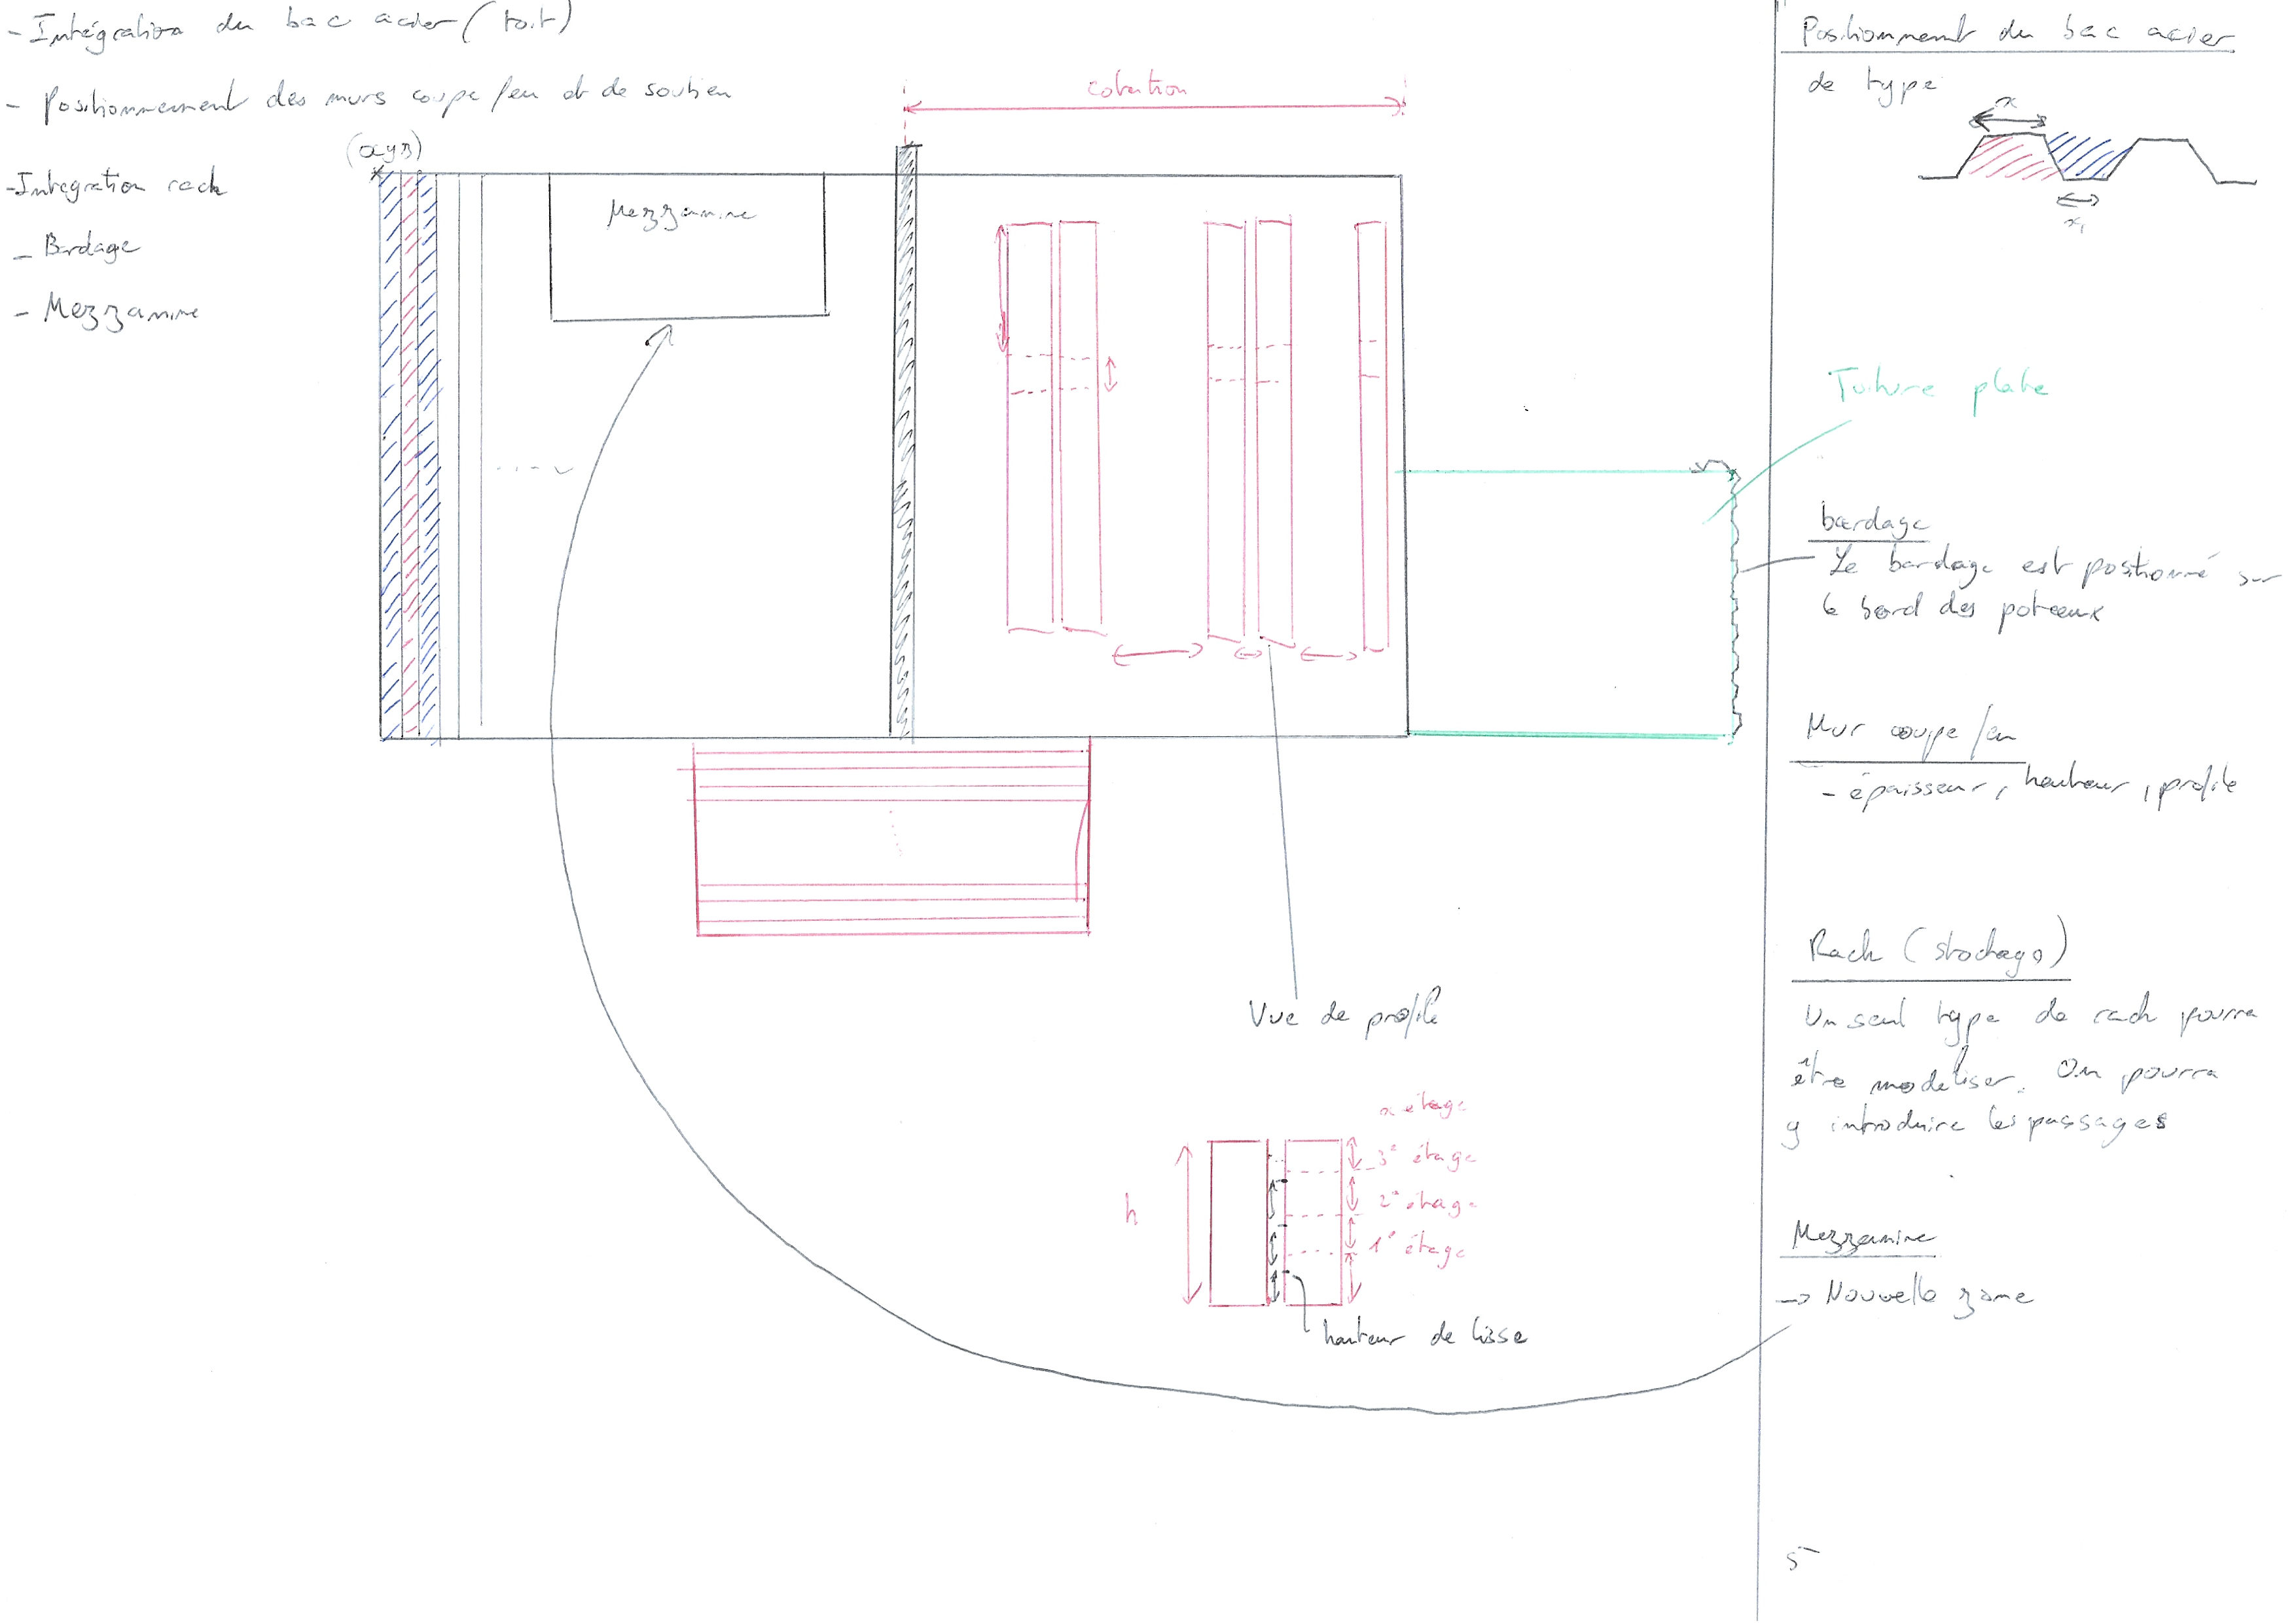 - Intégration du bac acier (toit)
- Positionnement des murs coupe feu et de soutien
- Integration rack
- Bardage
- Mezzanine
(xyz)
cotation
Mezzanine
Vue de profile
x étage
3° étage
2° étage
1° étage
h
hauteur de lisse
Positionnement du bac acier
de type
x
x1
Toiture plate
bardage
Le bardage est positionné sur
le bord des poteaux
Mur coupe feu
- épaisseur, hauteur, profile
Rack (stockage)
Un seul type de rack pourra
être modéliser. On pourra
y introduire les passages
Mezzanine
-> Nouvelle zone
5